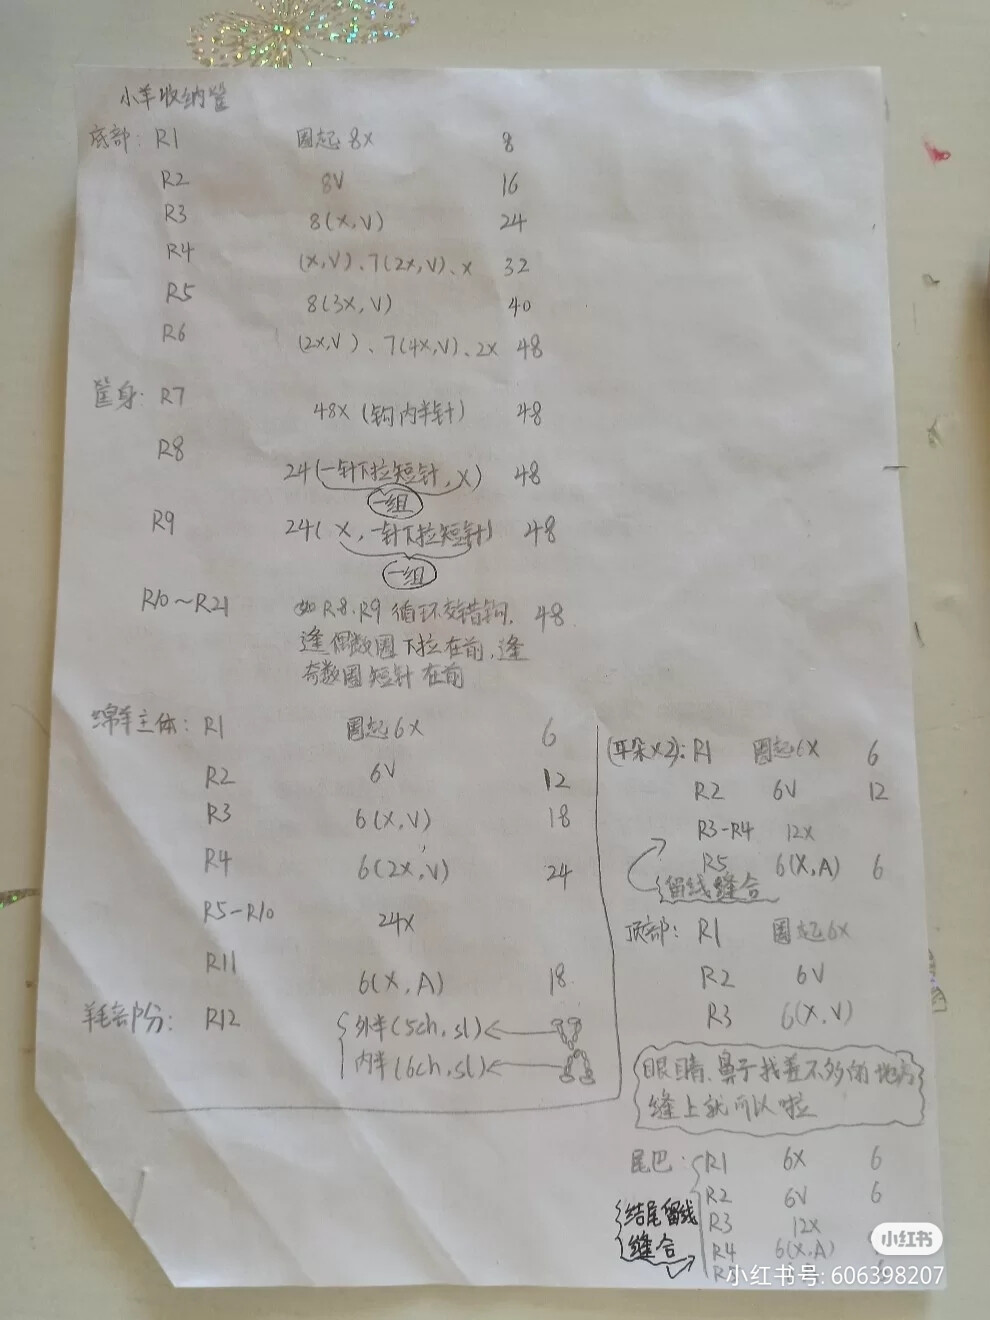 小羊收纳筐
底部: R1 圈起8X 8
R2 8V 16
R3 8(X,V) 24
R4 (X,V)、7(2X,V)、X 32
R5 8(3X,V) 40
R6 (2X,V)、7(4X,V)、2X 48
筐身: R7 48X (钩内半针) 48
R8 24(一针下拉短针,X) 48
一组
R9 24(X,一针下拉短针) 48
一组
R10~R21 如R8.R9循环交错钩, 48
逢偶数圈下拉在前,逢
奇数圈短针在前
绵羊主体: R1 圈起6X 6
R2 6V 12
R3 6(X,V) 18
R4 6(2X,V) 24
R5-R10 24X
R11 6(X,A) 18
羊毛部分: R12 外半(5ch,sl)
内半(6ch,sl)
(耳朵X2): R1 圈起6X 6
R2 6V 12
R3-R4 12X
R5 6(X,A) 6
留线缝合
顶部: R1 圈起6X
R2 6V
R3 6(X,V)
眼睛、鼻子找差不多的地方
缝上就可以啦
尾巴: R1 6X 6
R2 6V 6
R3 12X
R4 6(X,A)
结尾留线
缝合
小红书
小红书号: 606398207